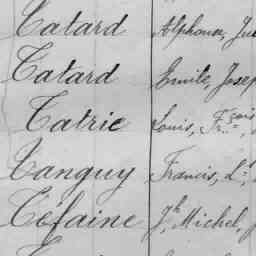 Catard Alphonse, Ju
Catard Emile, Josep
Catrie Louis, Fçois,
Canguy Francis, L.
Cefaine Jh, Michel,